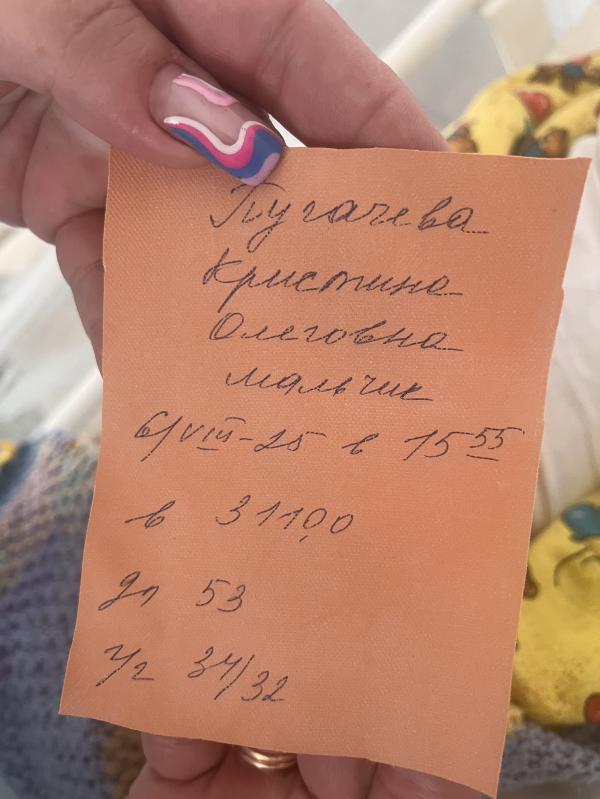 Пугачева
Кристина
Олеговна
мальчик
6/VIII-25 в 15 55
в 3110,0
дл 53
г/г 34/32